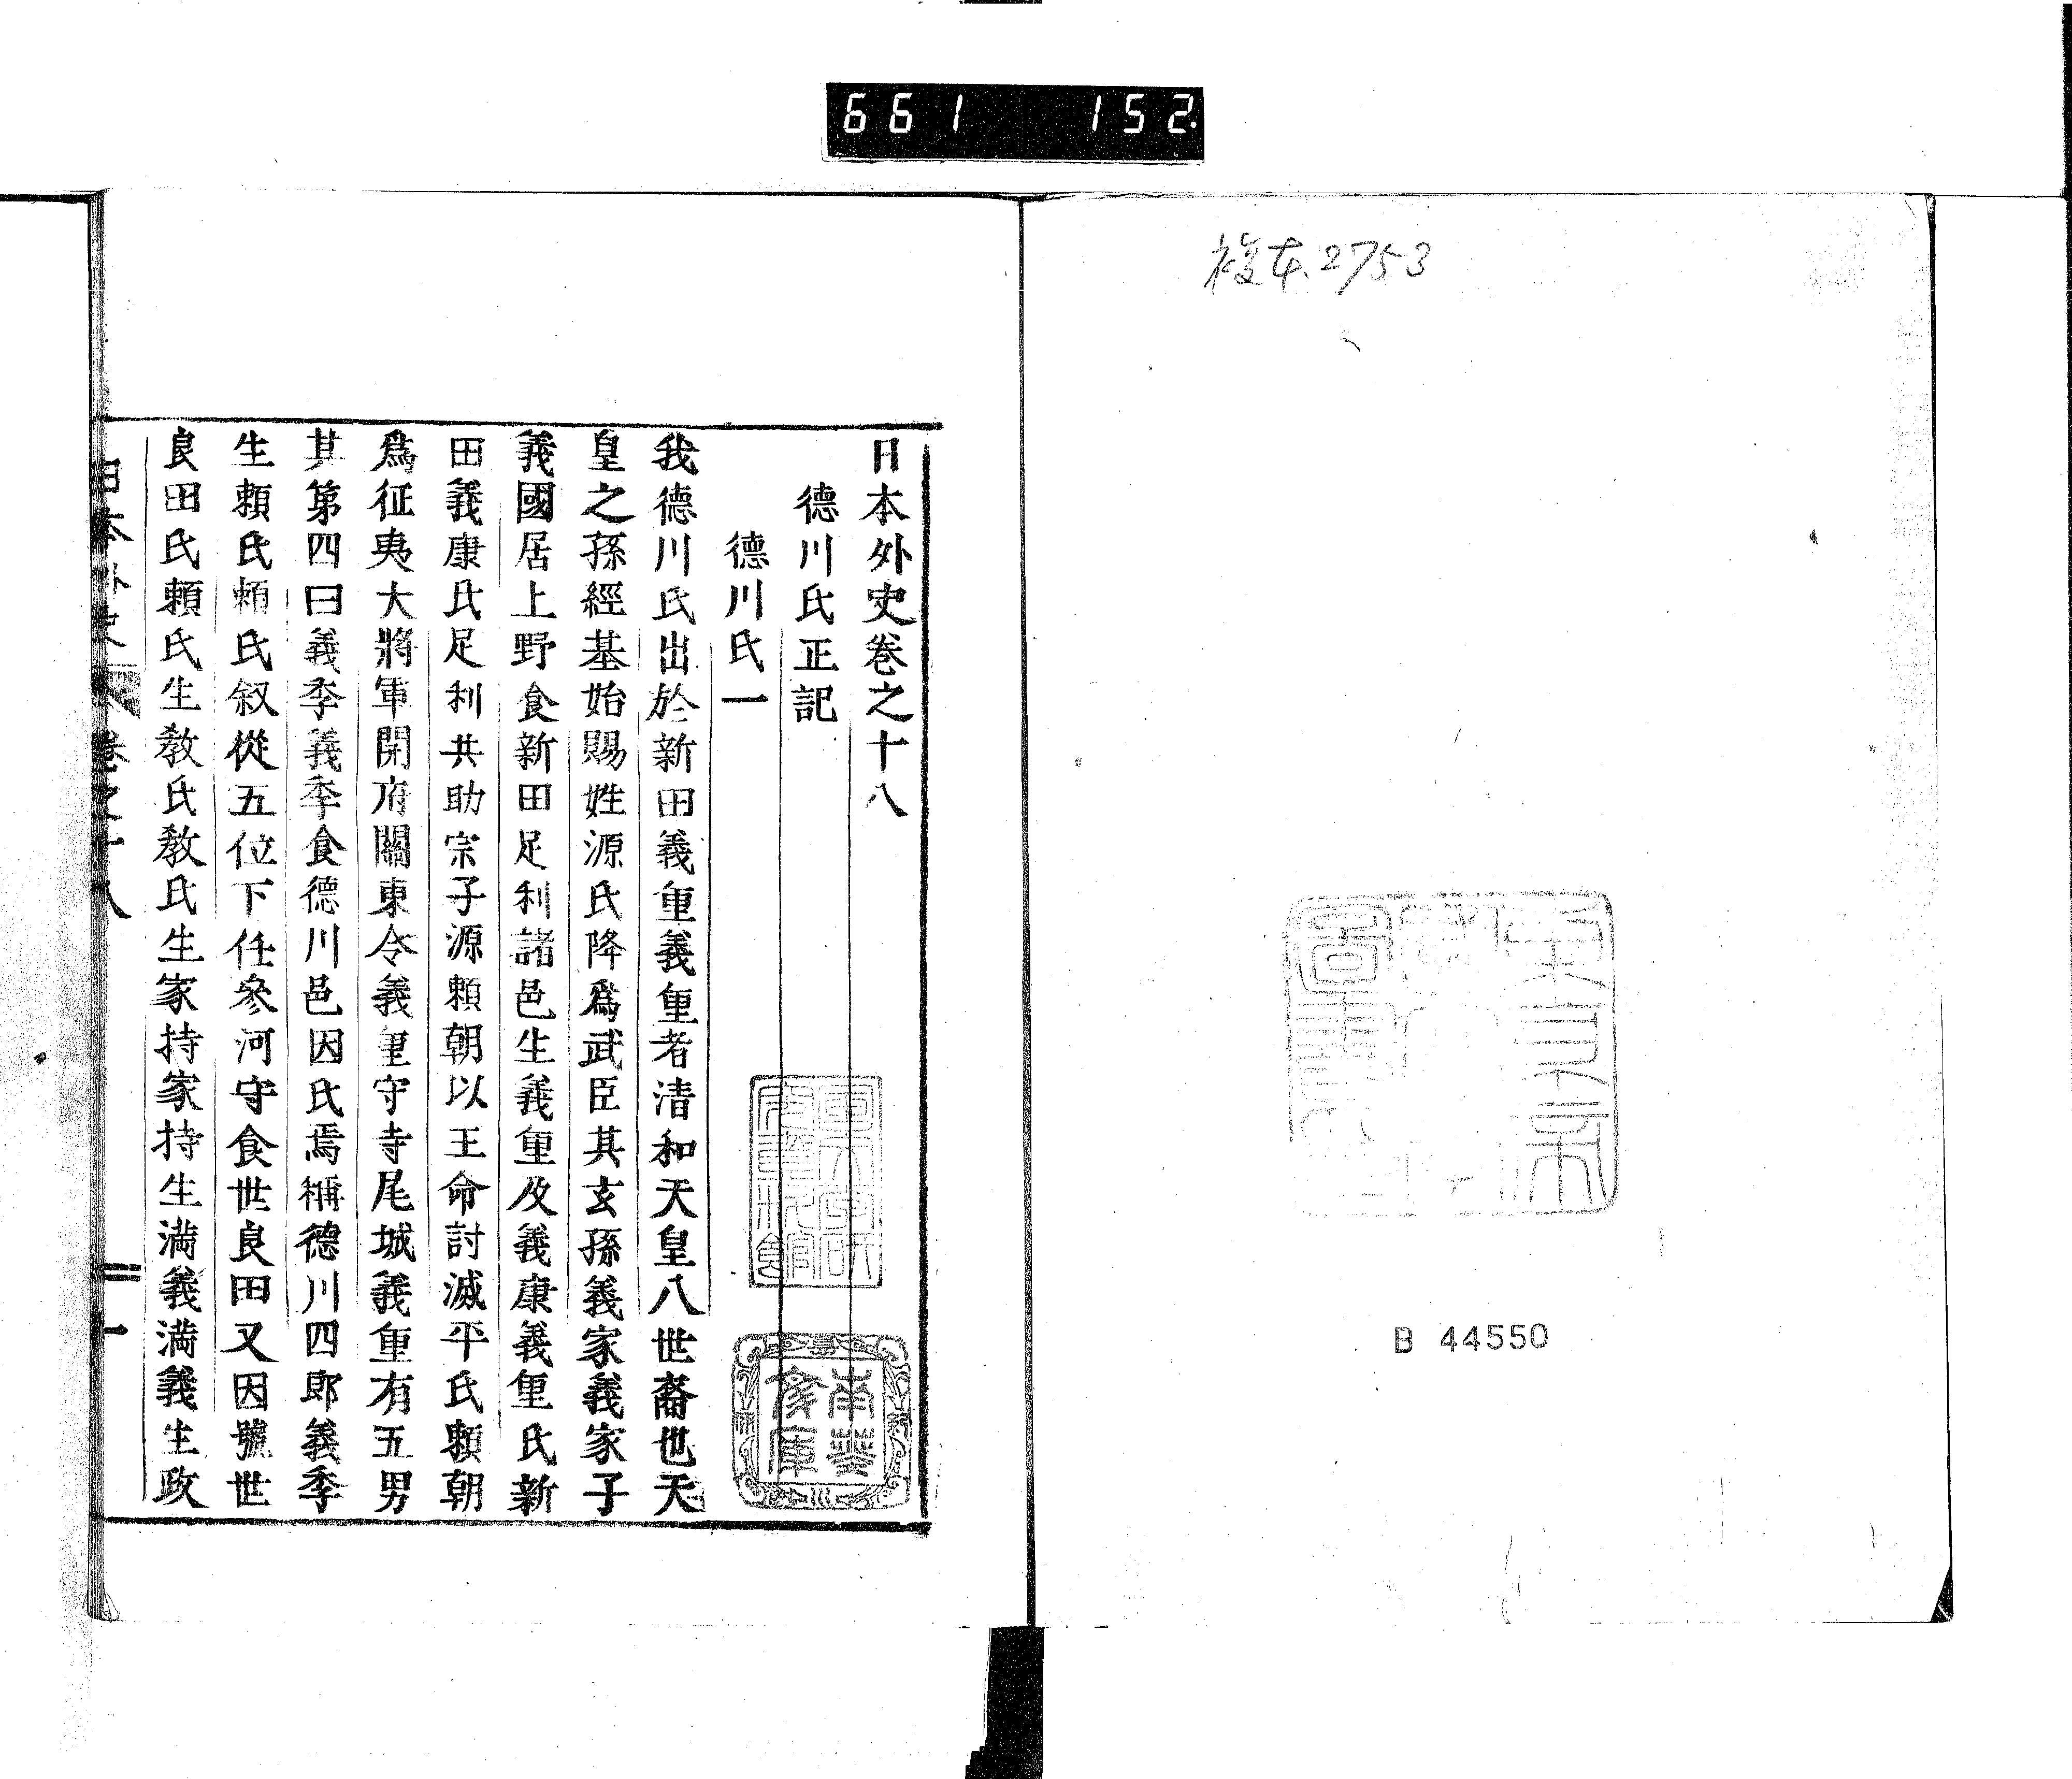 661 152.
複本 2753
B 44550
日本外史卷之十八
德川氏正記
德川氏一
我德川氏出於新田義重義重者清和天皇八世裔也天
皇之孫經基始賜姓源氏降爲武臣其玄孫義家義家子
義國居上野食新田足利諸邑生義重及義康義重氏新
田義康氏足利共助宗子源賴朝以王命討滅平氏賴朝
爲征夷大將軍開府關東令義重守寺尾城義重有五男
其第四曰義季義季食德川邑因氏焉稱德川四郎義季
生賴氏賴氏叙從五位下任參河守食世良田又因號世
良田氏賴氏生教氏教氏生家持家持生滿義滿義生政
日本外史 卷之十八 一